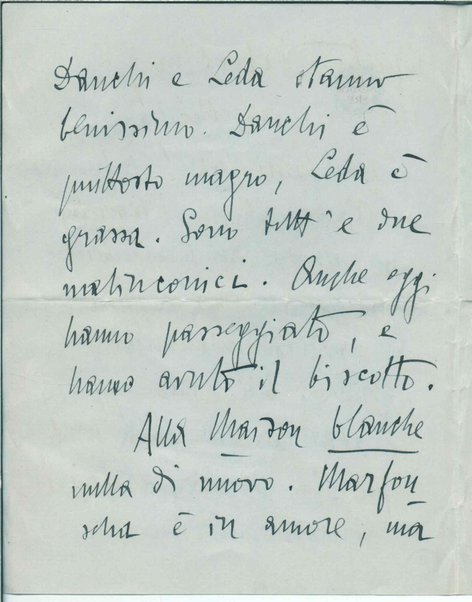 Danchi e Leda stanno
benissimo. Danchi è
piuttosto magro, Leda è
grassa. Sono tutt'e due
malinconici. Anche oggi
hanno passeggiato, e
hanno avuto il biscotto.
Alla Maison blanche
nulla di nuovo. Marfou
scha è in amore, ma